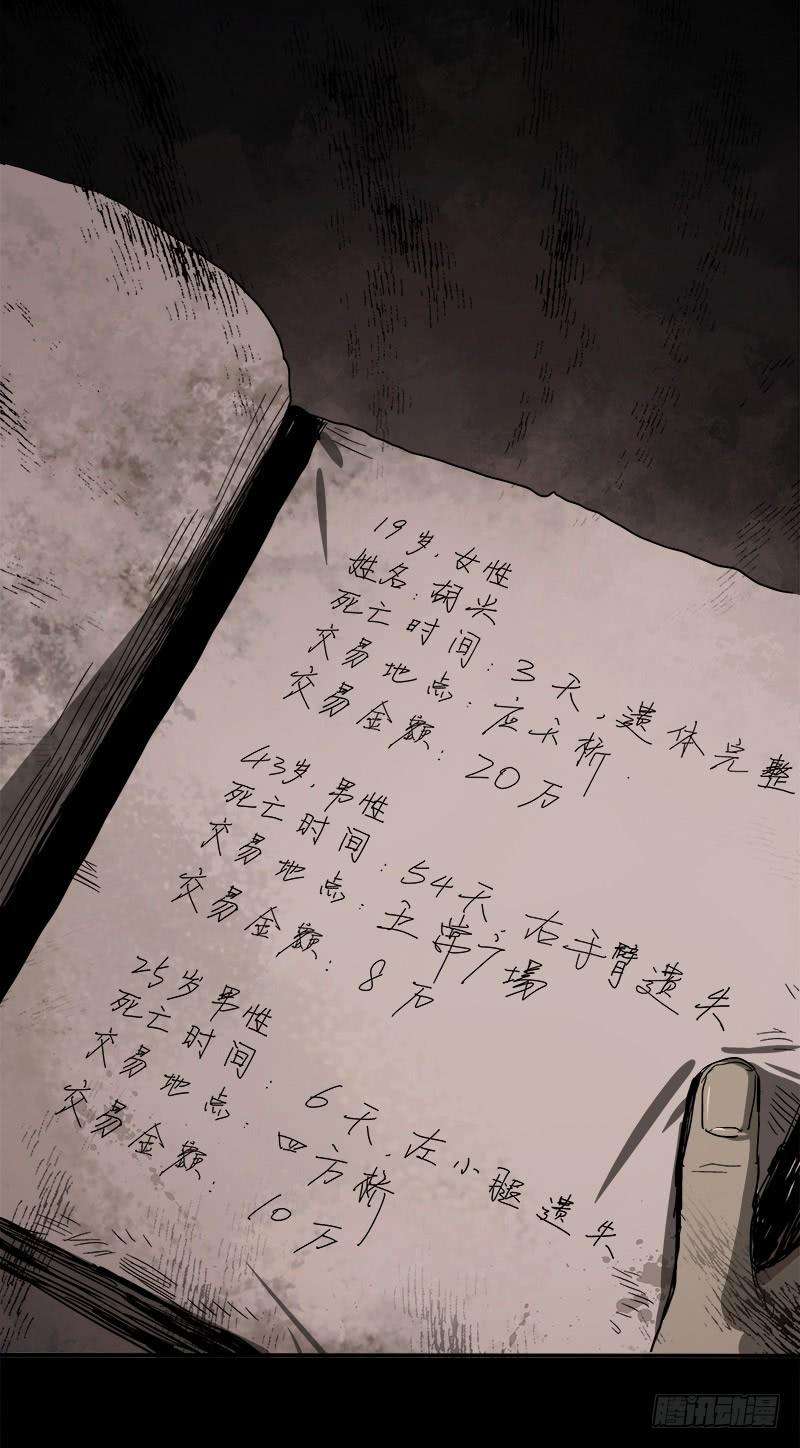 19岁，女性
姓名：胡兴
死亡时间：3天，遗体完整
交易地点：应天桥.
交易金额：20万
43岁，男性
死亡时间：54天，右手臂遗失
交易地点：主常广場
交易金额：8万
25岁男性
死亡时间：6天，左小腿遗失
交易地点：四方桥
交易金额：10万
腾讯动漫